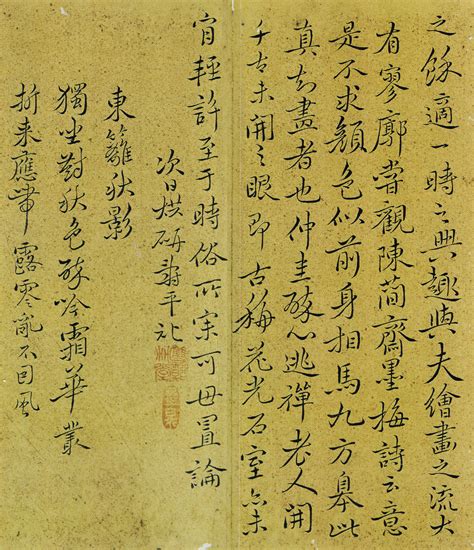 之餘適一時之興趣與夫繪畫之流大
有寥廓嘗觀陳簡齋墨梅詩云意
足不求顏色似前身相馬九方皋此
真知畫者也仲圭醉心逃禪老人開
千古未開之眼即古稱花光石室亦未
肯輕許至于時俗所宗可毋置論
次日烘研壽平記
東籬秋影
獨坐對秋色醉吟霜華叢
折来應帶露零亂不因風